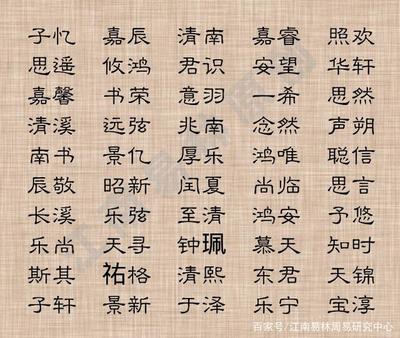 子忆 嘉辰 清南 嘉睿 照欢
思遥 攸鸿 君识 安望 华轩
嘉馨 书荣 意羽 一希 思然
清溪 远弦 兆南 念然 声朔
南书 景亿 厚乐 鸿唯 聪信
辰敬 昭新 闰夏 尚临 思言
长溪 乐弦 至清 鸿安 予悠
乐尚 天寻 钟珮 慕天 知时
斯其 祐格 清熙 东君 天锦
子轩 景新 于泽 乐宁 宝淳
百家号/江南易林周易研究中心